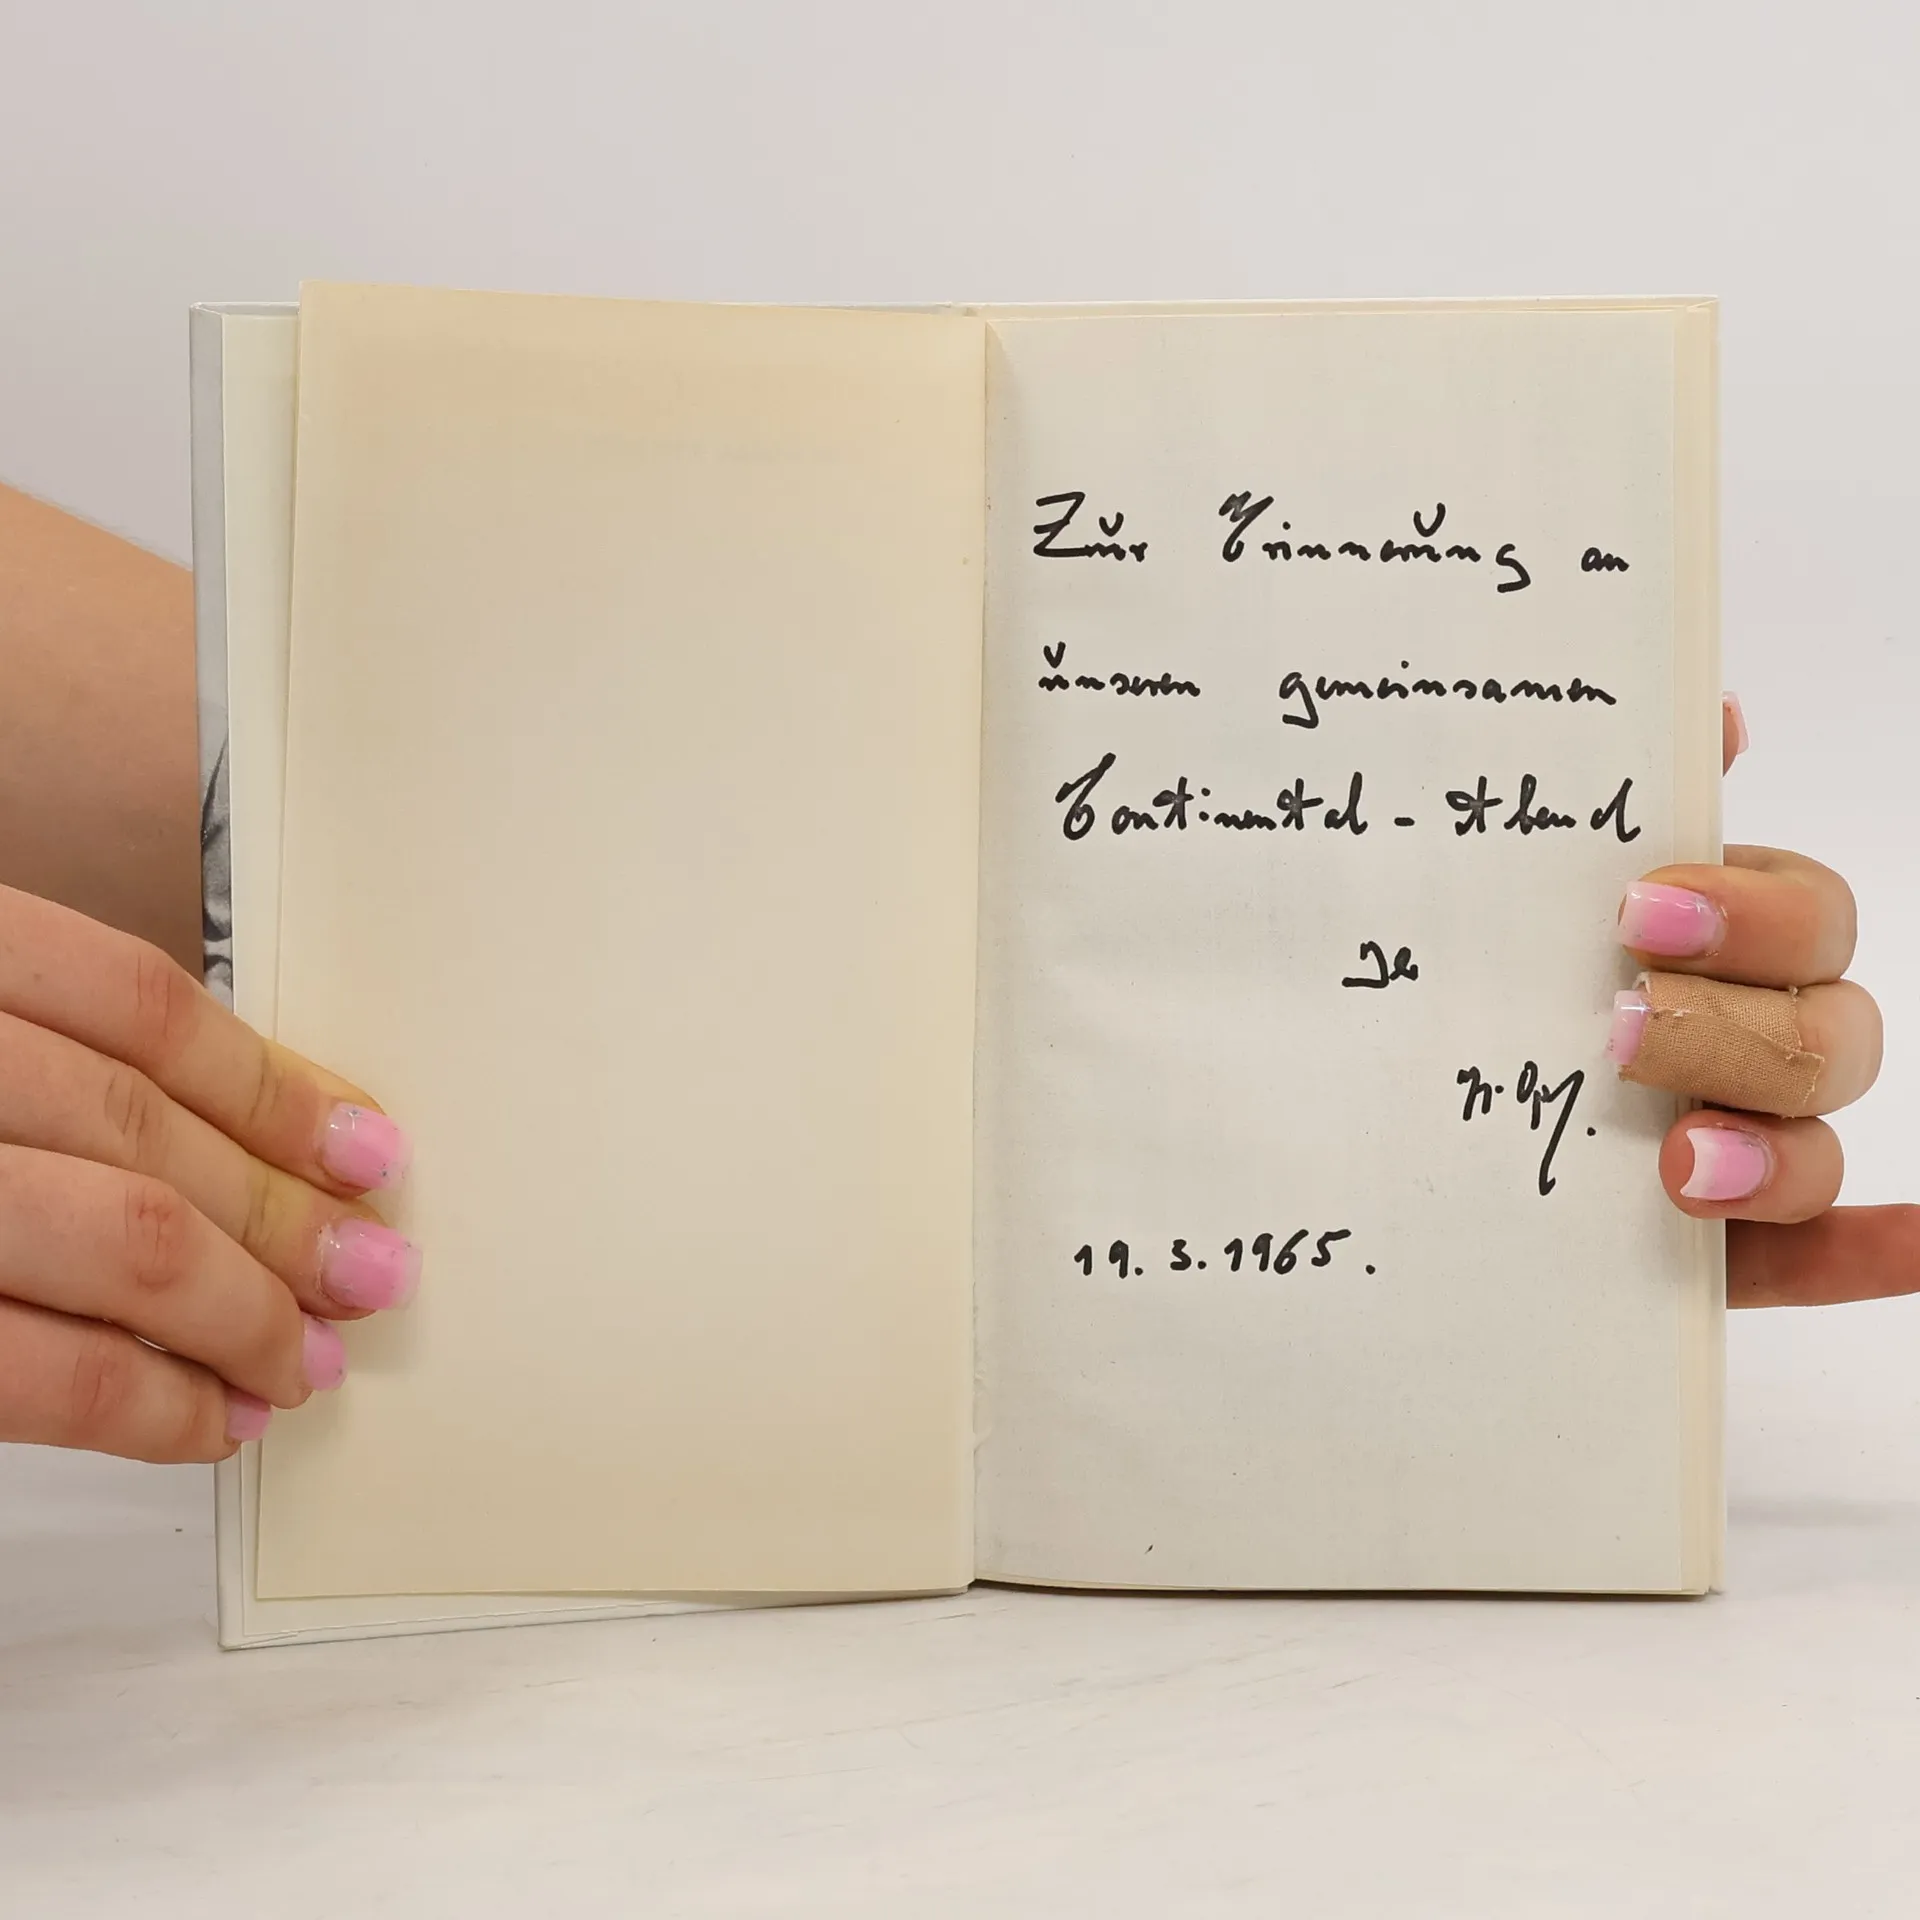 Zur Erinnerung an
unseren gemeinsamen
Continental - Abend
19. 3. 1965.